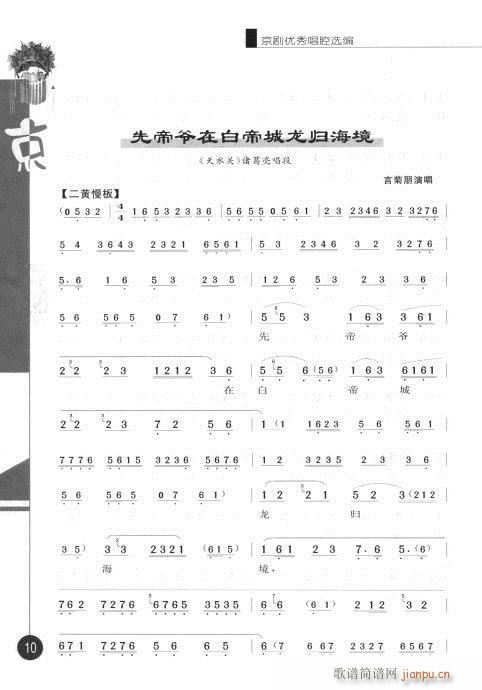 京剧优秀唱腔选编
京
先帝爷在白帝城龙归海境
《天水关》诸葛亮唱段
言菊朋演唱
【二黄慢板】
(0532 4/4 1 6532 3236 5655 0561 23 2346 32 3276
54 3643 2321 6561 5123 5 1 2346 3432
5.6 16 53 235 126 53 23 36
56 565 07 61) 553 163 361
先 帝 爷
22 23 1212 36 55 6(56) 163 6161
在 白 帝 城
22 23 72 56 1(1 1623 52 561
7776 5615 3236 5676 12 3235 23 561
56 565 07 61 12 21 52 3(212
龙 归
35) 33 2321 (615) 161 23 7.6 5.(6
海 境,
762 7276 6765 3535 66 (61) 213 7656
671 7276 56 56 6(7 67 2327 6567
10
歌谱简谱网
jianpu.cn